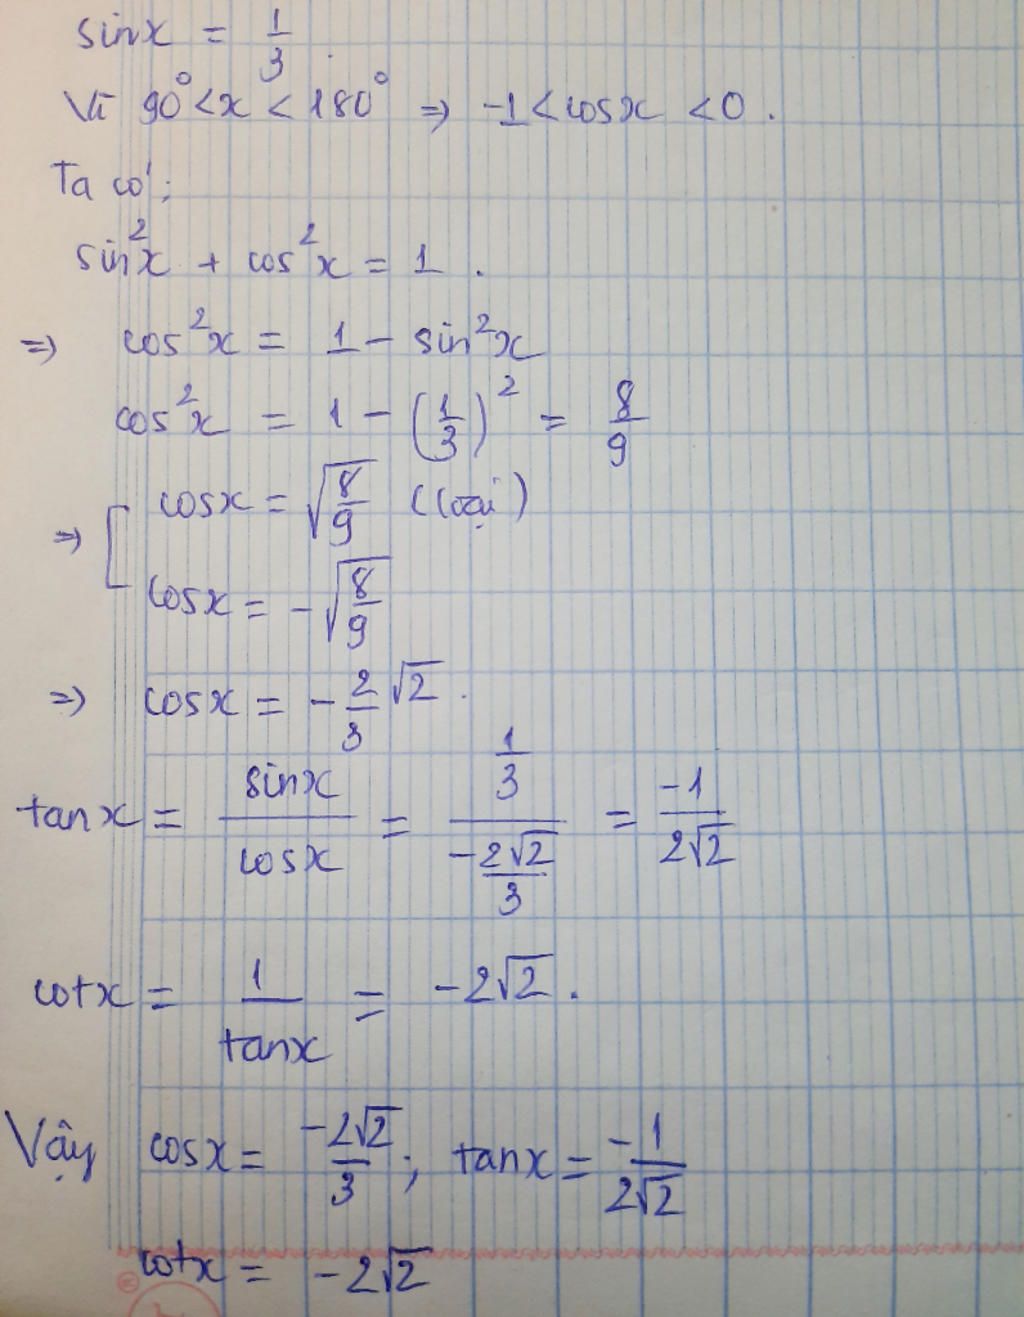 sinx = 1/3.
Vì 90° < x < 180° ⇒ -1 < cosx < 0.
Ta có:
sin²x + cos²x = 1.
⇒ cos²x = 1 - sin²x
cos²x = 1 - (1/3)² = 8/9
⇒ [ cosx = √(8/9) (loại)
cosx = -√(8/9)
⇒ cosx = -2/3 √2.
tanx = sinx/cosx = (1/3)/(-2√2/3) = -1/(2√2)
cotx = 1/tanx = -2√2.
Vậy cosx = -2√2/3; tanx = -1/(2√2)
cotx = -2√2